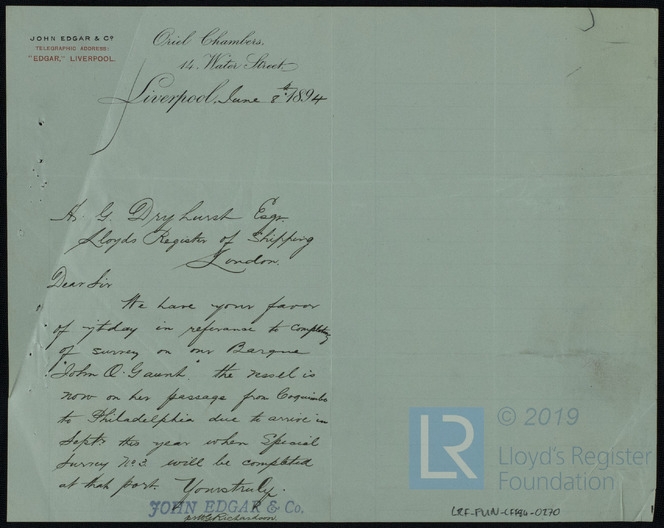 JOHN EDGAR & Co
TELEGRAPHIC ADDRESS:
"EDGAR," LIVERPOOL.
Oriel Chambers,
14, Water Street,
Liverpool, June 8th 1894
H. G. Dryhurst Esqr.
Lloyds Register of Shipping
London.
Dear Sir
We have your favor
of ytday in referance to completing
of survey on our Barque
"John O. Gaunt" the vessel is
now on her passage from Coquimbo
to Philadelphia due to arrive in
Sept. this year when Special
Survey No 3 will be completed
at that port. Yours truly.
JOHN EDGAR & Co.
Richardson
LR
© 2019
Lloyd's Register
Foundation
LRF-PUN-LF194-0270